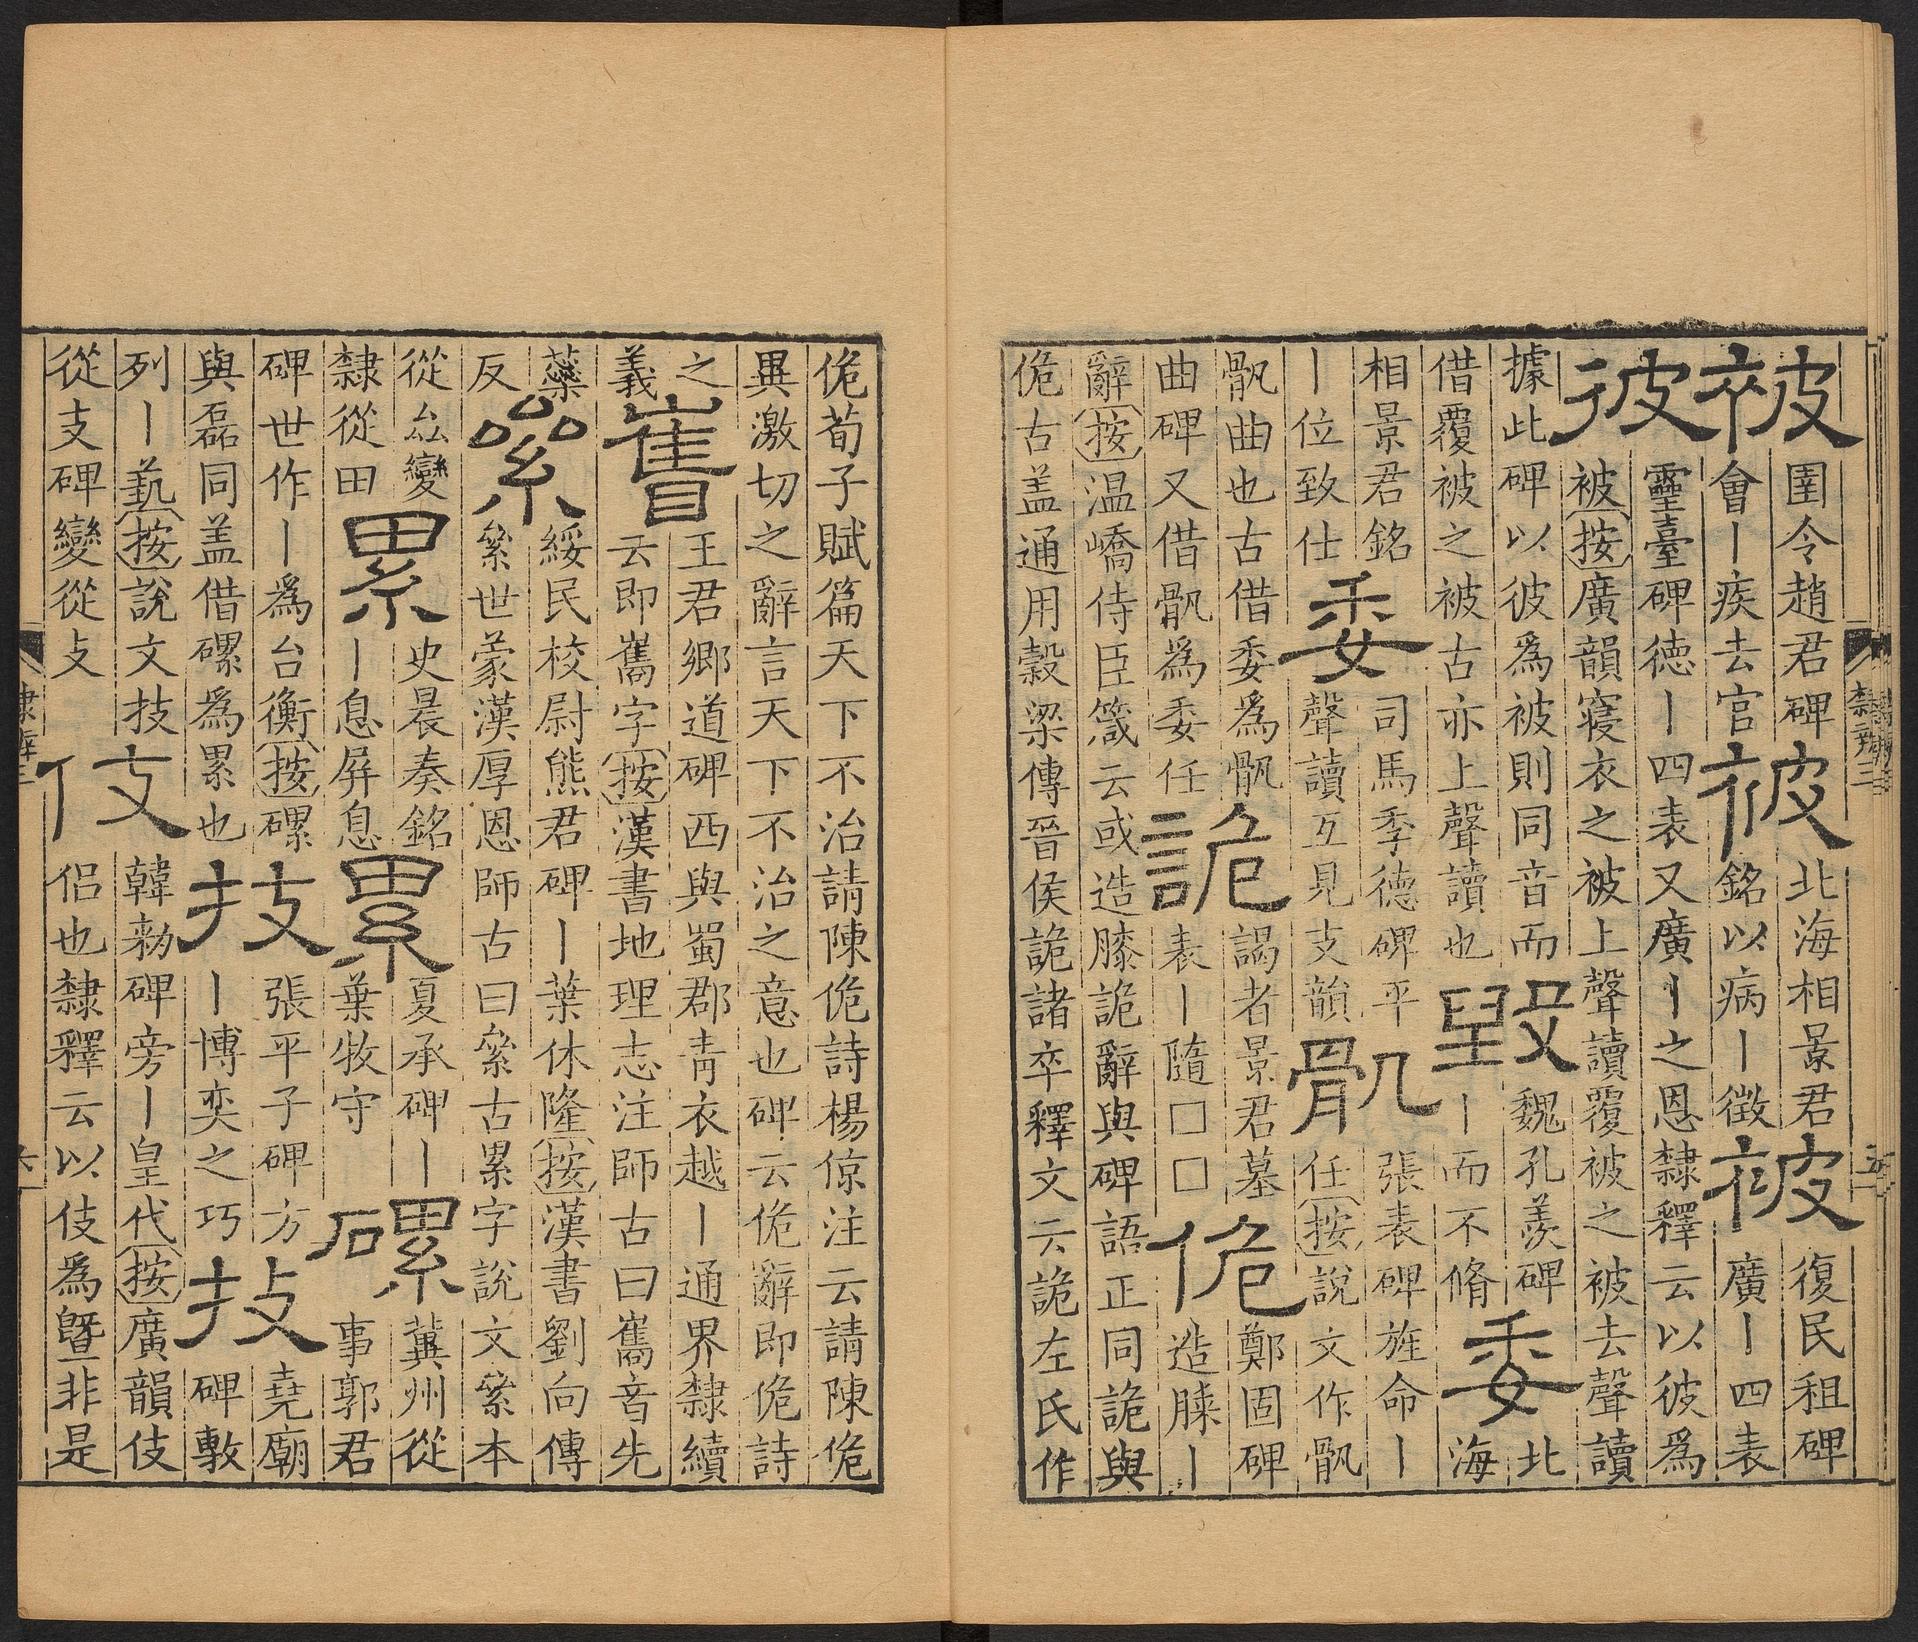 被
圉令趙君碑
會丨疾去官
被
北海相景君
銘以病丨徵
被
復民租碑
廣丨四表
彼
靈臺碑德丨四表又廣丨之恩隸釋云以彼爲
被按廣韻寑衣之被上聲讀覆被之被去聲讀
據此碑以彼爲被則同音而
借覆被之被古亦上聲讀也
毀
魏孔羨碑
丨而不脩
委
北
海
相景君銘
丨位致仕
委
司馬季德碑平
聲讀互見支韻
骩
張表碑旌命丨
任按說文作骩
骩曲也古借委爲骩
曲碑又借骩爲委任
詭
謁者景君墓
表丨隨□□
佹
鄭固碑
造膝丨
辭按温嶠侍臣箴云或造膝詭辭與碑語正同詭與
佹古盖通用穀梁傳晉侯詭諸卒釋文云詭左氏作
隸辨三
五
佹荀子賦篇天下不治請陳佹詩楊倞注云請陳佹
異激切之辭言天下不治之意也碑云佹辭即佹詩
之
義
巂
王君鄉道碑西與蜀郡青衣越丨通界隸續
云即巂字按漢書地理志注師古曰巂音先
蘂
反
絫
綏民校尉熊君碑丨葉休隆按漢書劉向傳
絫世蒙漢厚恩師古曰絫古累字說文絫本
從厽變
隸從田
累
史晨奏銘
丨息屏息
累
夏承碑丨
葉牧守
磥
冀州從
事郭君
碑世作丨爲台衡按磥
與磊同盖借磥爲累也
技
張平子碑方
丨博奕之巧
技
堯廟
碑敷
列丨藝按說文技
從支碑變從攴
伎
韓勑碑旁丨皇代按廣韻伎
侶也隸釋云以伎爲曁非是
隸辨三
六